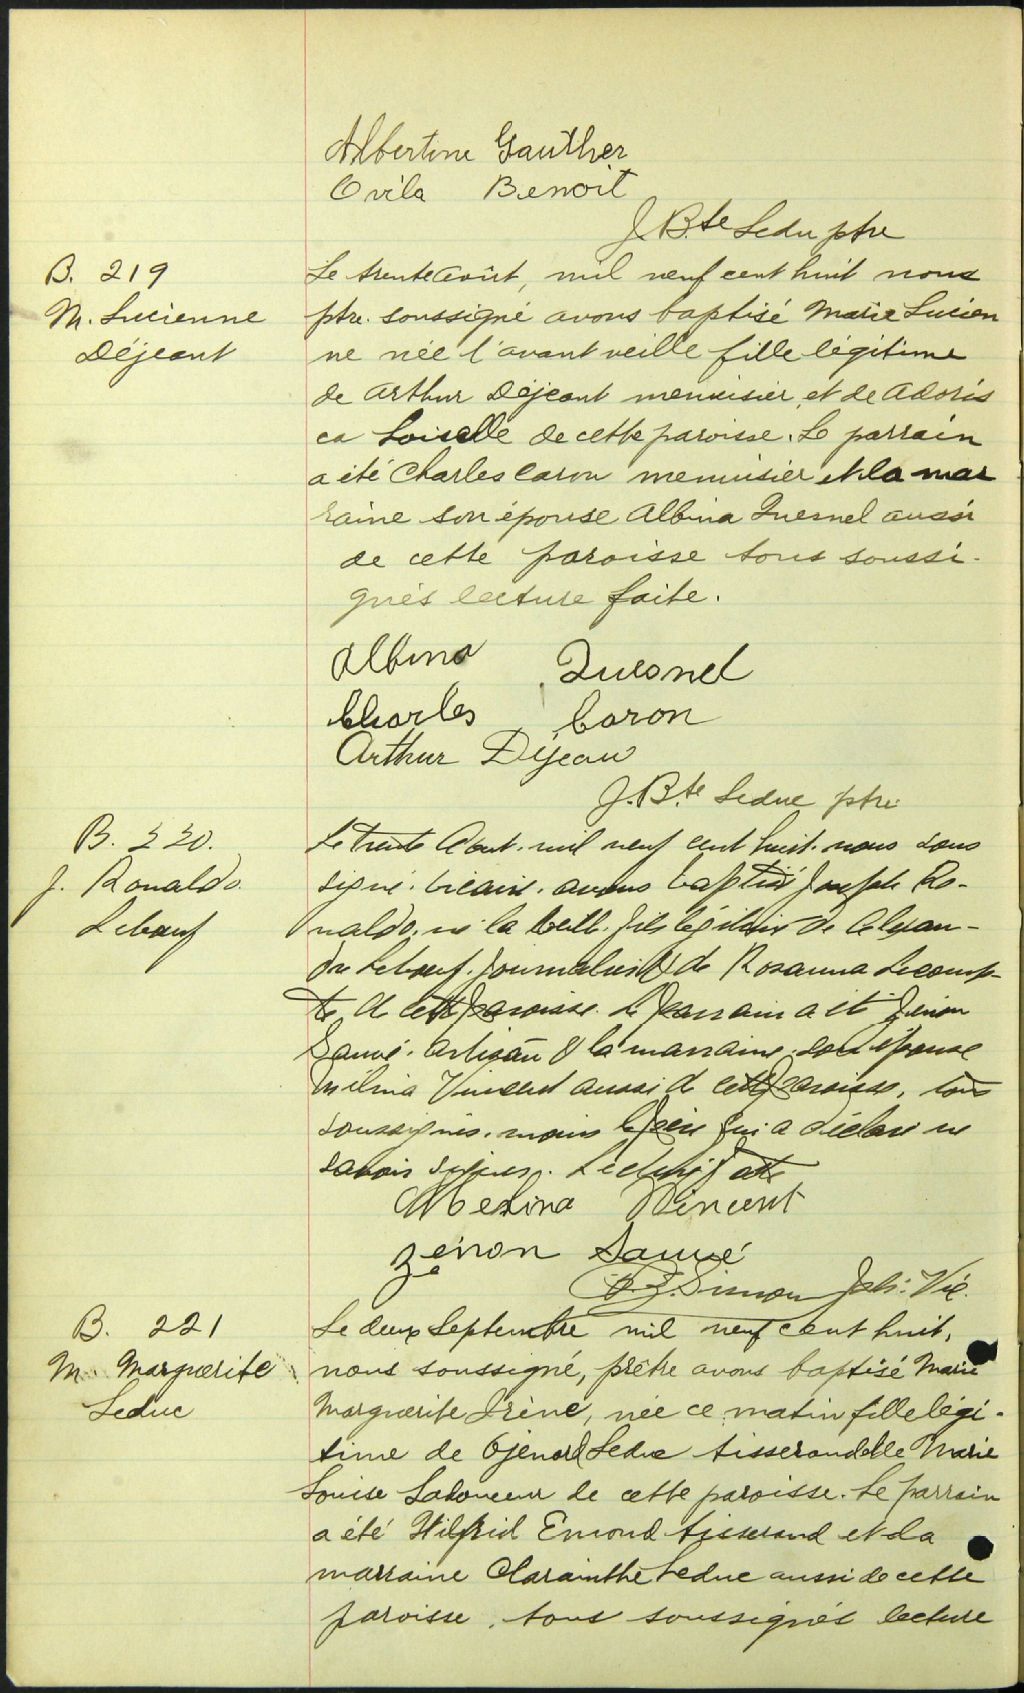 Albertine Gauthier
Ovila Benoit
J. Bte Leduc ptre
B. 219
M. Lucienne
Déjeant
Le trente août, mil neuf cent huit nous
ptre. soussigné avons baptisé Marie Lucien
ne née l'avant veille fille légitime
de Arthur Déjeant menuisier et de Adoris
ca Loiselle de cette paroisse. Le parrain
a été Charles Caron menuisier et la mar
raine son épouse Albina Quesnel aussi
de cette paroisse tous soussi-
gnés lecture faite.
Albina Quesnel
Charles Caron
Arthur Déjeau
J. Bte Leduc ptre
B. 220.
J. Ronaldo
Lebœuf
Le trente Aout. mil neuf cent huit. nous sous
signé. vicaire. avons baptisé Joseph Ro-
naldo. né la veille. fils légitime de Alexan-
dre Lebœuf. journalier & de Rosanna Lecomp-
te de cette paroisse. Le parrain a été Zénon
Sauvé. artisan & la marraine. son épouse
Mélina Vincent aussi de cette paroisse, tous
soussignés. moins le père qui a déclaré ne
savoir signer. Lecture faite
Melina Vincent
Zénon Sauvé
Simon Vic.
B. 221
M. Marguerite
Leduc
Le deux Septembre mil neuf cent huit,
nous soussigné, prêtre avons baptisé Marie
Marguerite Irène, née ce matin fille légi-
time de Leduc tisserand et de Marie
Louise Ladouceur de cette paroisse. Le parrain
a été Wilfrid Emond tisserand et la
marraine Clarinthe Leduc aussi de cette
paroisse. tous soussignés lecture